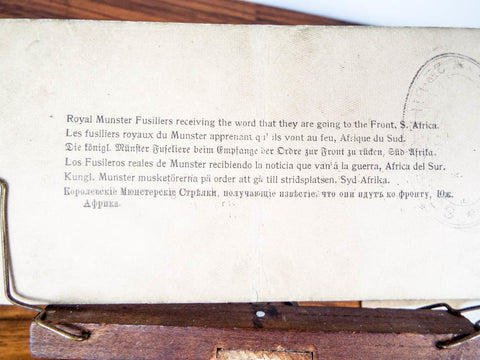 Royal Munster Fusiliers receiving the word that they are going to the Front, S. Africa.
Les fusiliers royaux du Munster apprenant qu' ils vont au feu, Afrique du Sud.
Die königl. Münster Fuseliere beim Empfange der Ordre zur Front zu rücken, Süd-Afrika.
Los Fusileros reales de Munster recibiendo la noticia que van á la guerra, Africa del Sur.
Kungl. Munster musketörerna på order att gå till stridsplatsen. Syd-Afrika.
Королевскіе Мюнстерскіе Стрѣлки, получающіе извѣстіе, что они идутъ ко фронту, Юж.
Африка.